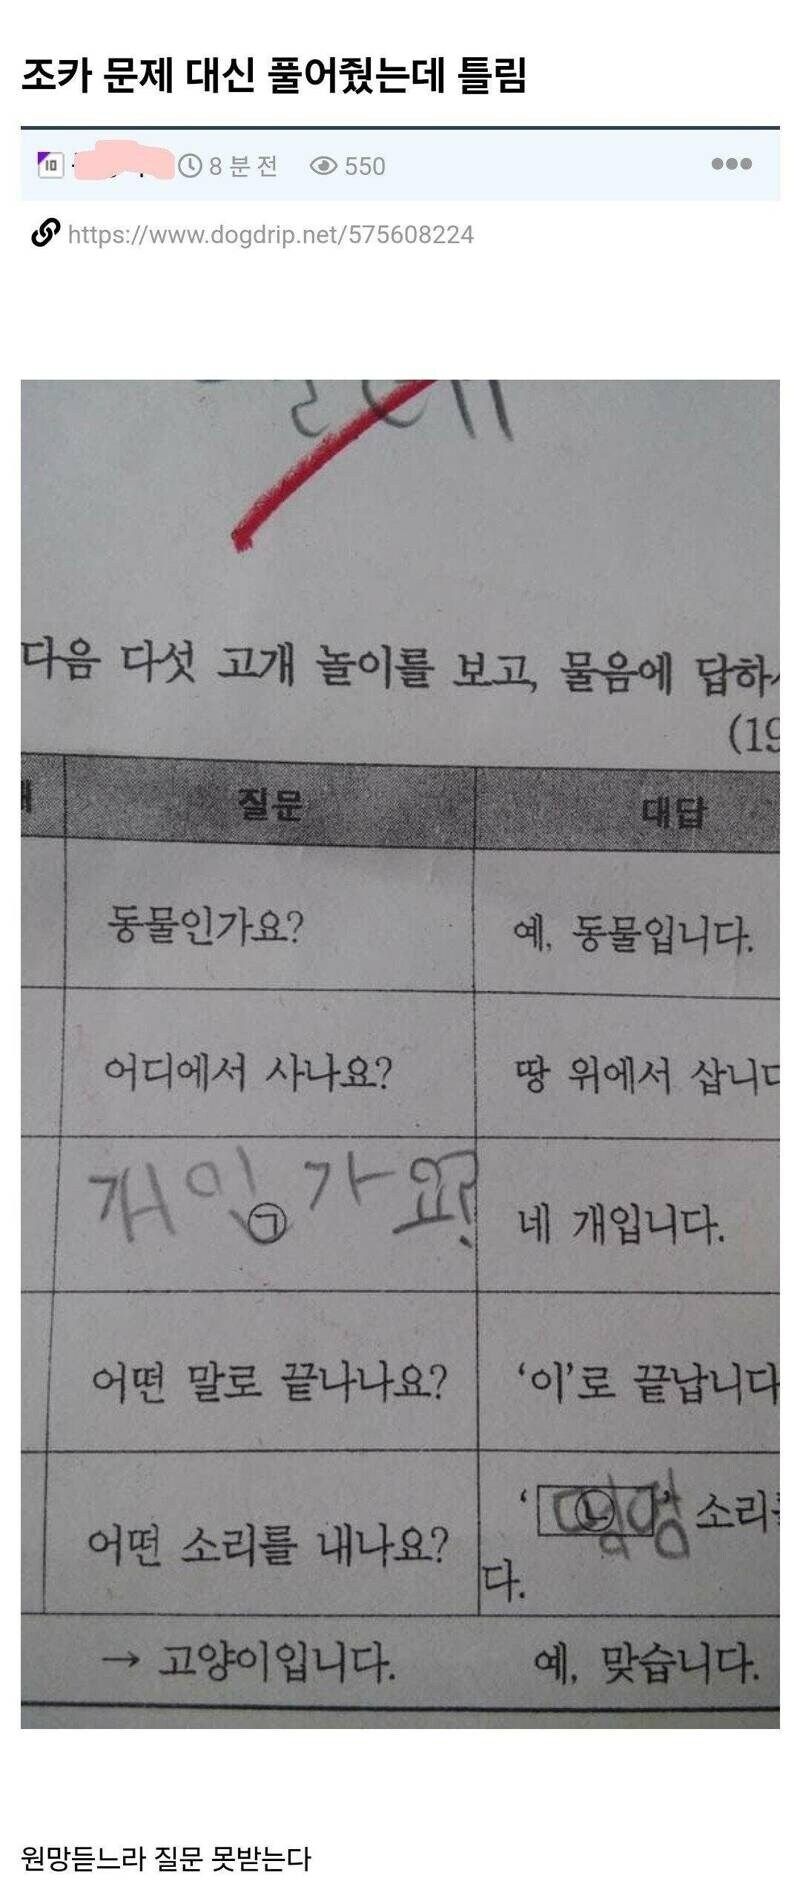 조카 문제 대신 풀어줬는데 틀림
8 분 전 550
https://www.dogdrip.net/575608224
다음 다섯 고개 놀이를 보고, 물음에 답하
(19
질문 대답
동물인가요? 예, 동물입니다.
어디에서 사나요? 땅 위에서 삽니다
개인가요?
㉠
네 개입니다.
어떤 말로 끝나나요? ‘이’로 끝납니다
어떤 소리를 내나요? ‘㉡’ 소리를
다.
→ 고양이입니다. 예, 맞습니다.
원망듣느라 질문 못받는다